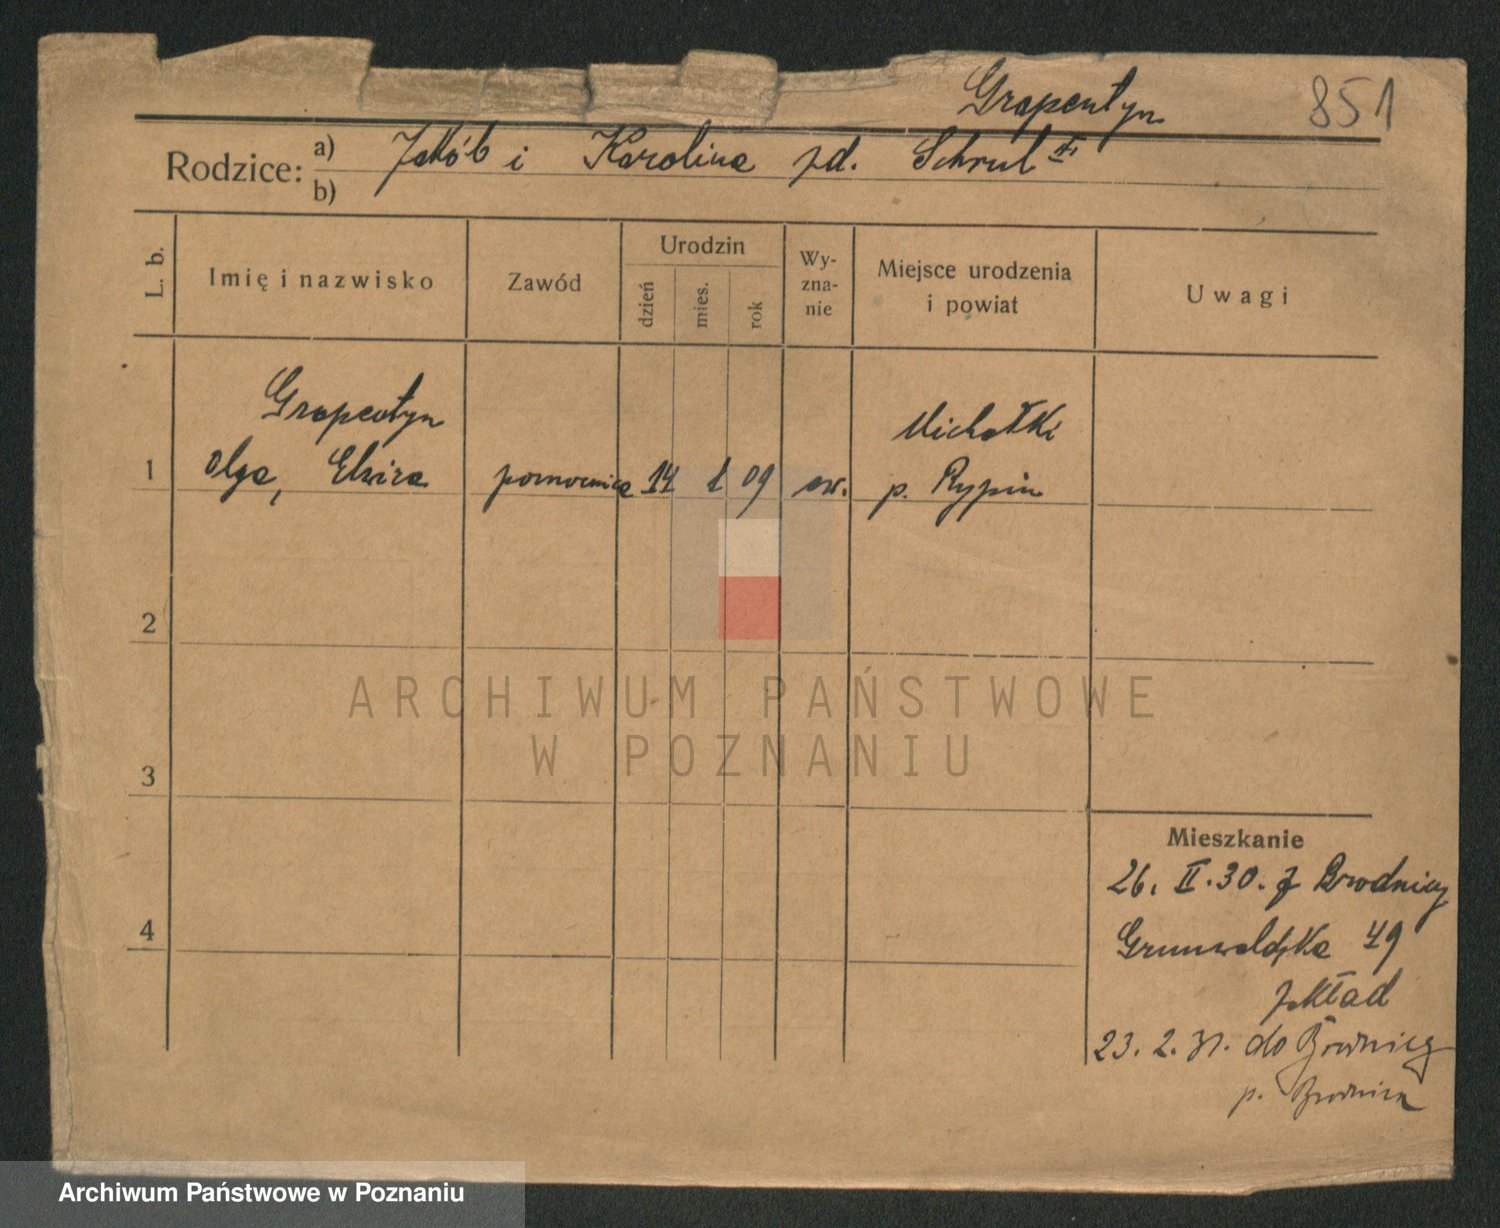 Grapentyn
851
Rodzice: a) Jakób i Karolina zd. Schrul
b)
L. b.
Imię i nazwisko
Zawód
Urodzin
dzień
mies.
rok
Wy-
zna-
nie
Miejsce urodzenia
i powiat
Uwagi
Grapentyn
Michałki
1 Olga, Elwira pomocnica 14 1 09 ew. p. Rypin
2
ARCHIWUM PAŃSTWOWE
W POZNANIU
3
Mieszkanie
26. II. 30. z Brodnicy
4
Grunwaldzka 49
zakład
23. 2. 31. do Brodnicy
p. Brodnica
Archiwum Państwowe w Poznaniu